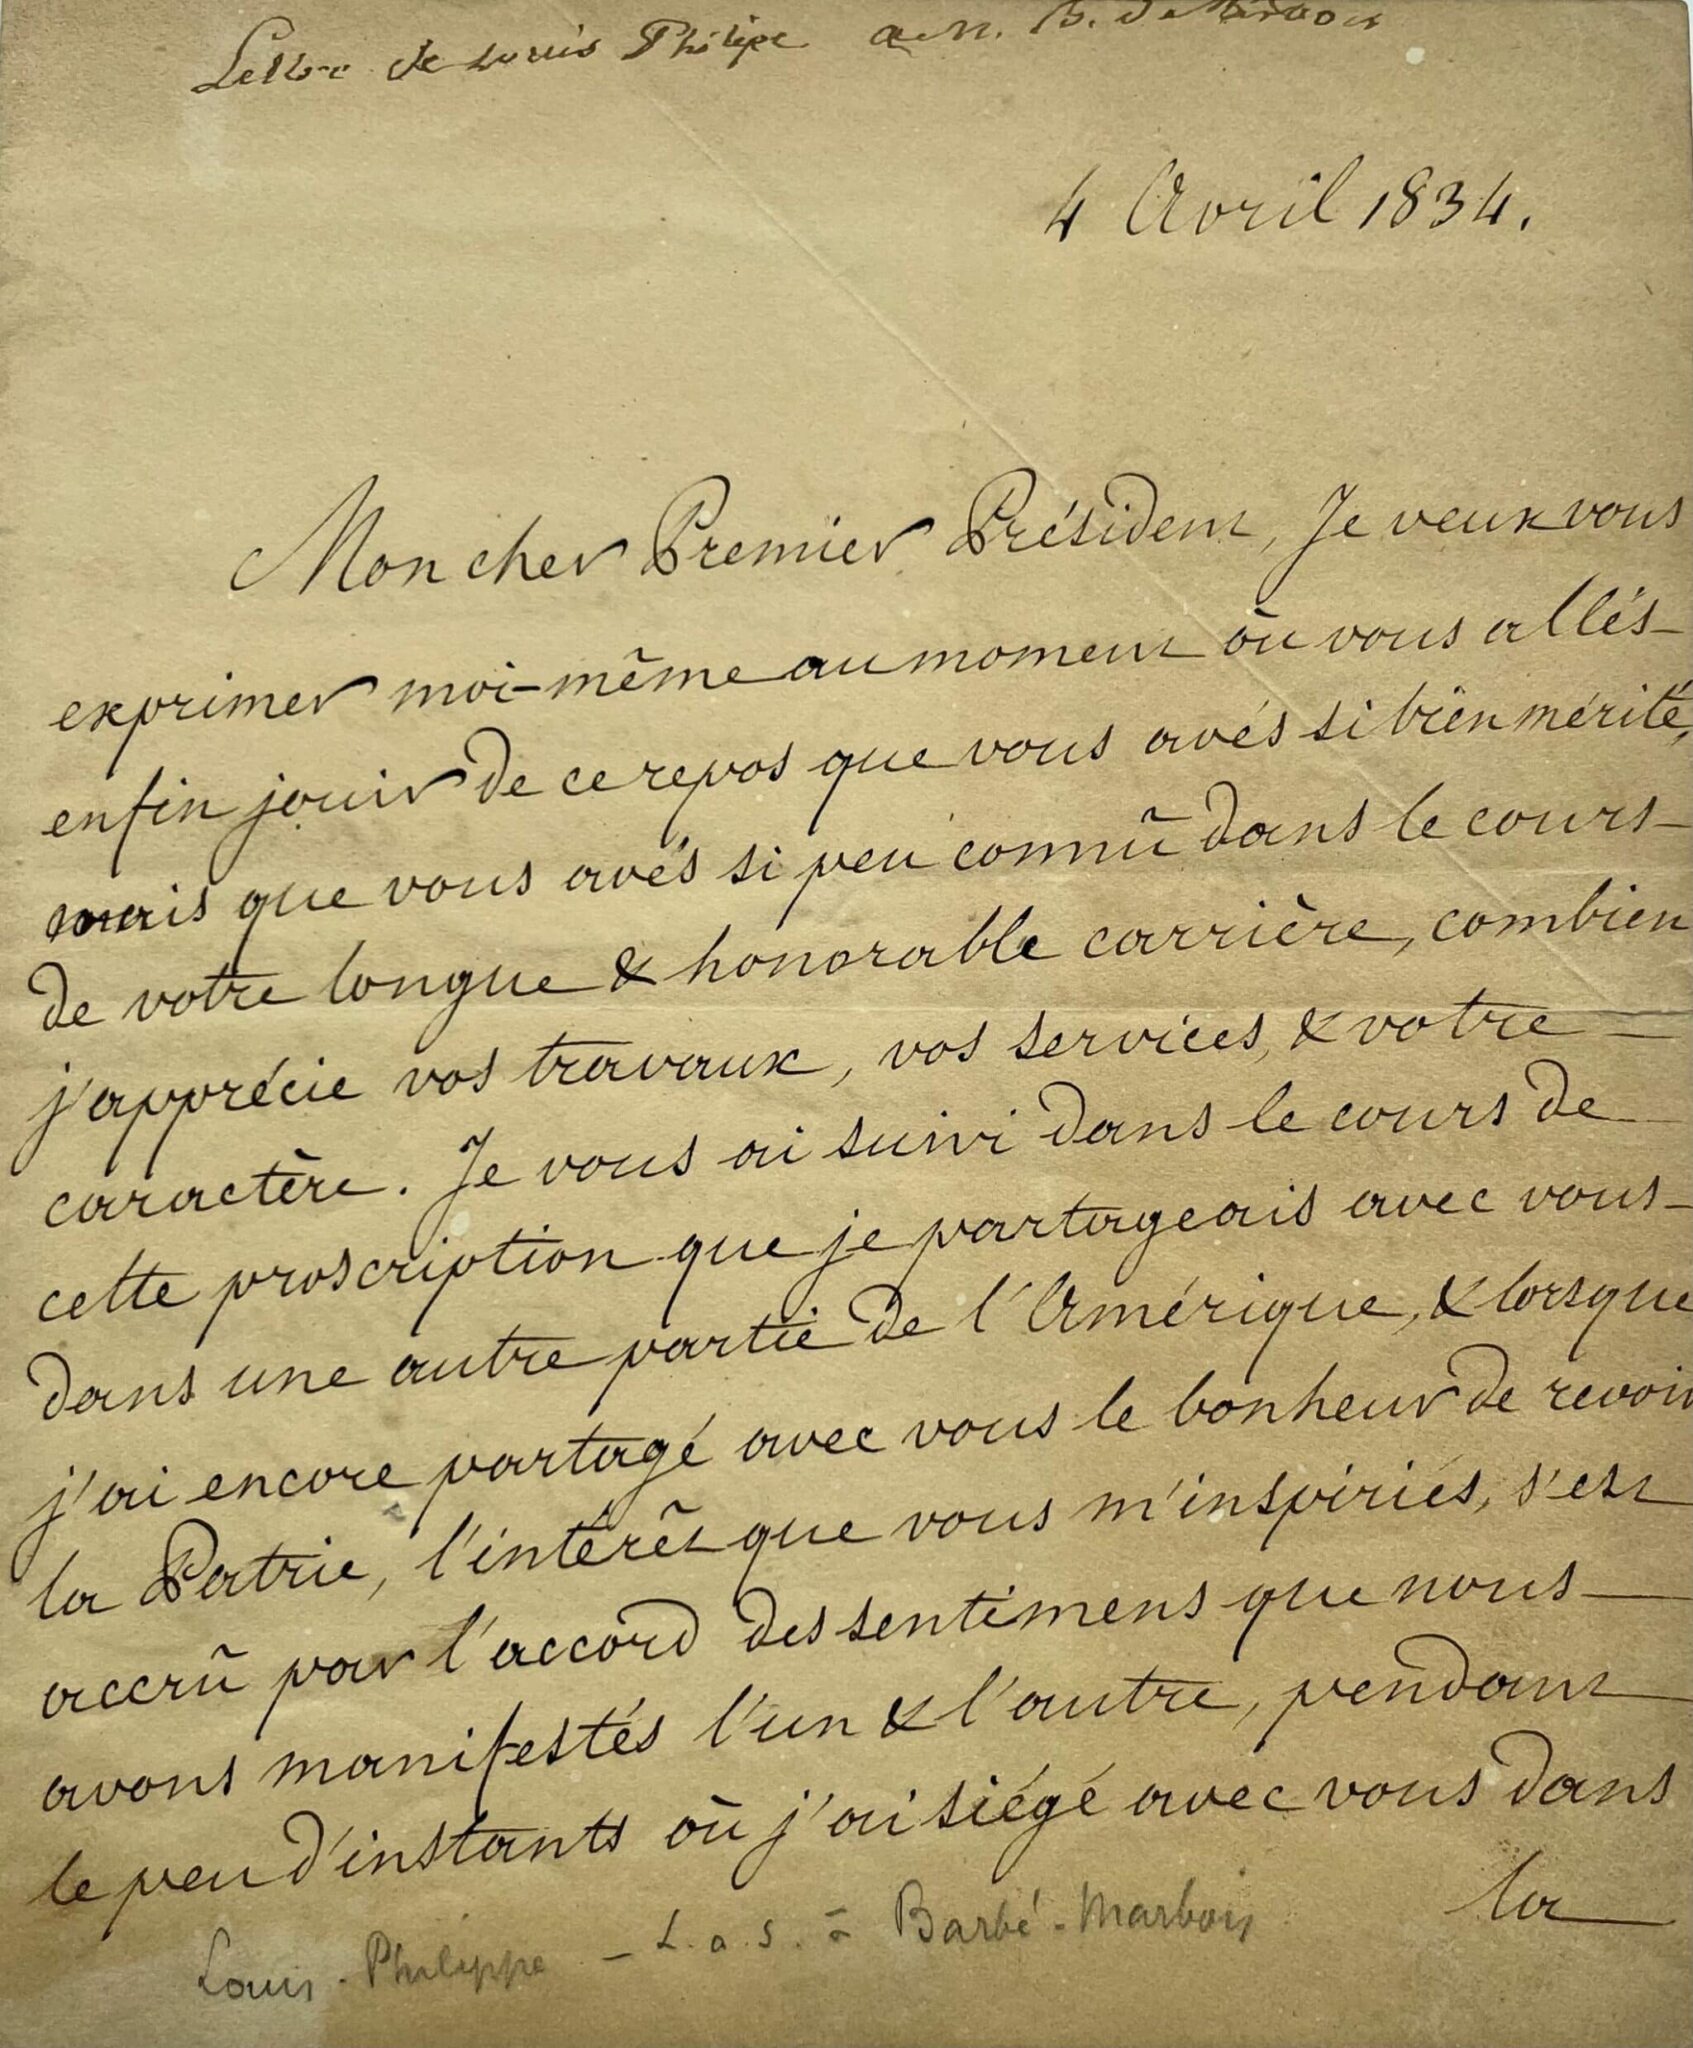 Lettre de Louis Philipe a M. B. de Marbois
4 Avril 1834.
Mon cher Premier Président, Je veux vous
exprimer moi-même au moment où vous allés
enfin jouir de ce repos que vous avés si bien mérité,
mais que vous avés si peu connû dans le cours
de votre longue & honorable carrière, combien
j'apprécie vos travaux, vos services, & votre
caractère. Je vous ai suivi dans le cours de
cette proscription que je partageais avec vous
dans une autre partie de l'Amérique, & lorsque
j'ai encore partagé avec vous le bonheur de revoir
la Patrie, l'intérêt que vous m'inspiriés, s'est
accrû par l'accord des sentimens que nous
avons manifestés l'un & l'autre, pendant
le peu d'instants où j'ai siégé avec vous dans
la
Louis-Philippe - L.a.s. à Barbé-Marbois